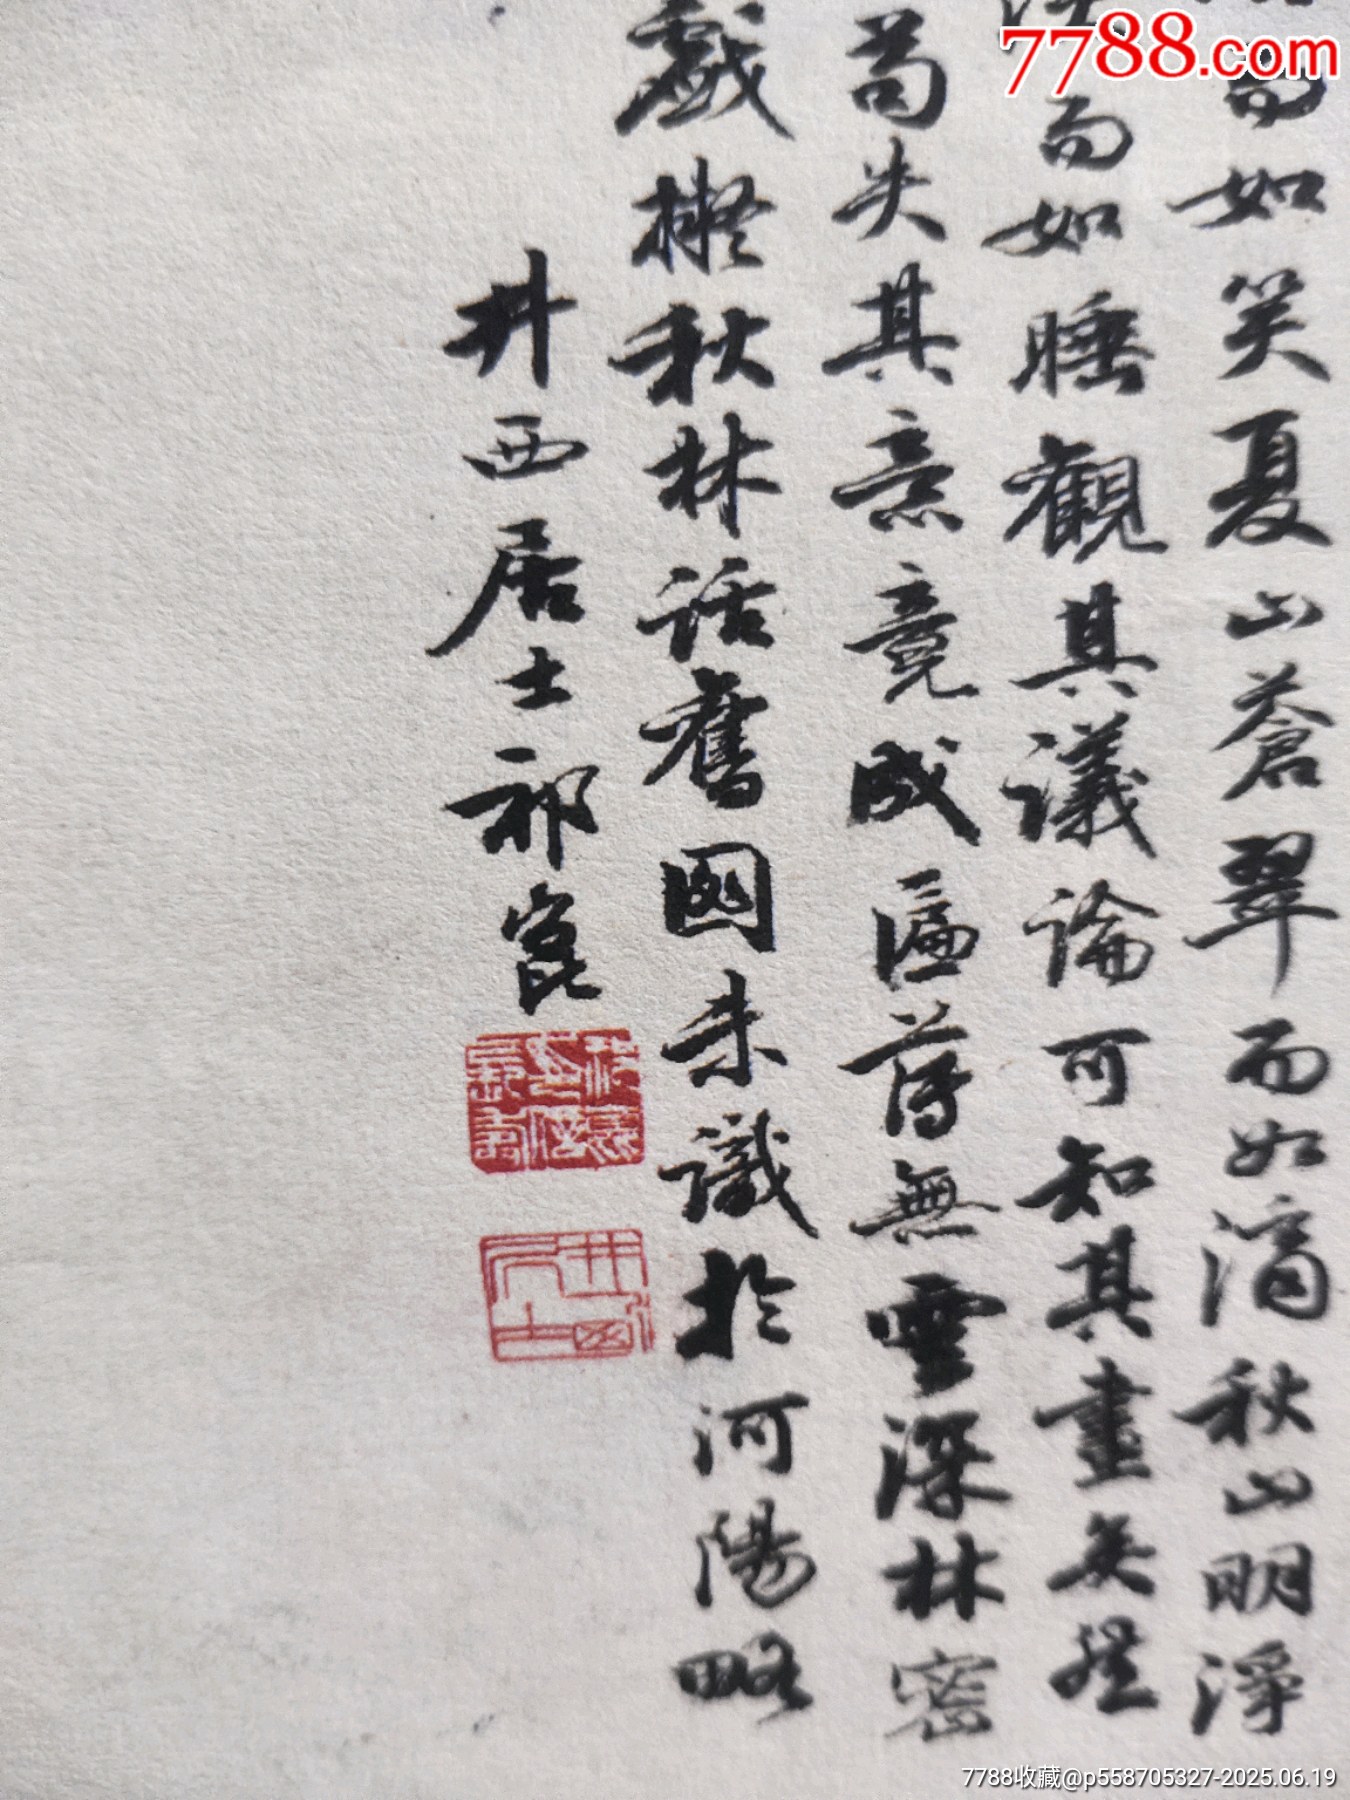 7788.com
而如笑夏山蒼翠而如滴秋山明淨
而如睡觀其議論可知其畫矣
苟失其意竟成匾薄無雲深林密
戲擬秋林話舊圖未識於河陽略
井西居士祁崑
井西居士
7788收藏@p558705327-2025.06.19